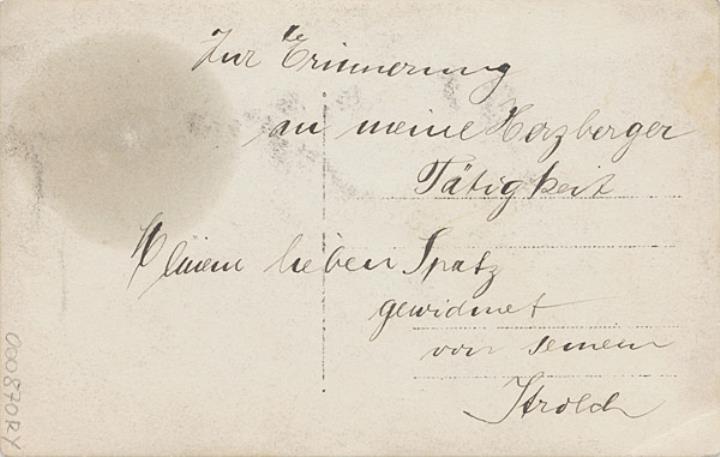 Zur Erinnerung
an meine Herzberger
Tätigkeit
Meinem lieben Spatz
gewidmet
von seinem
Strolch
000870RY